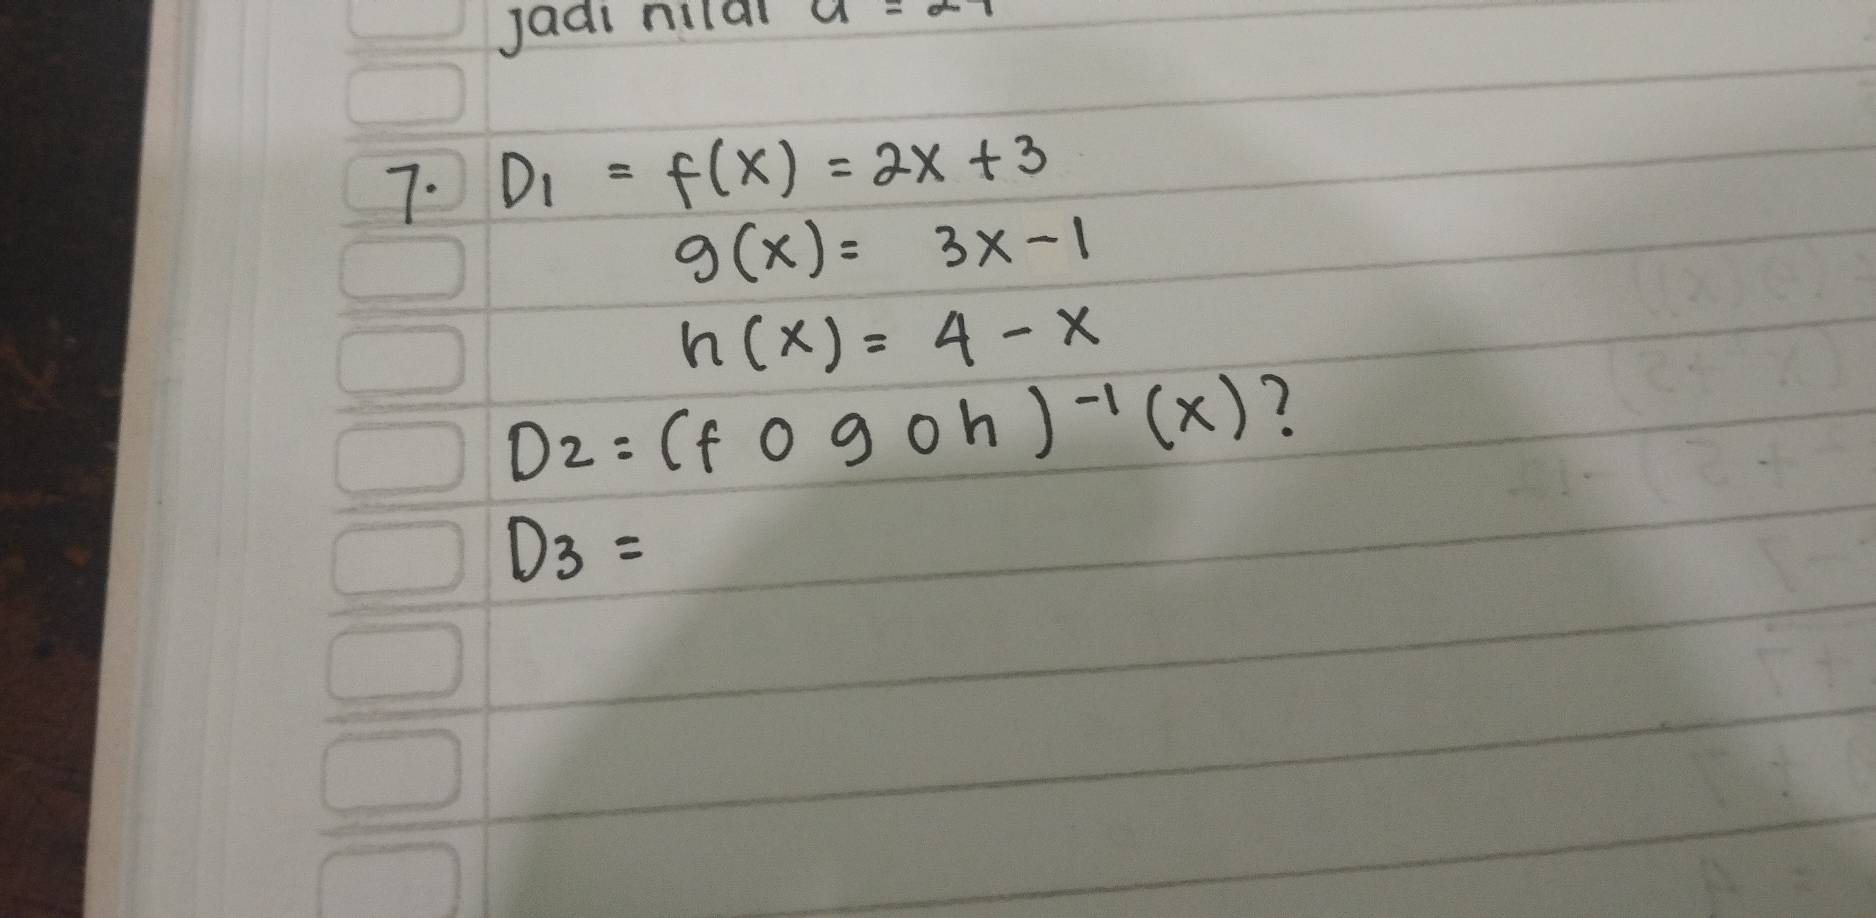 jadi nilai a = 24
7. D1 = f(x) = 2x + 3
g(x) = 3x - 1
h(x) = 4 - x
D2 = (f o g o h)⁻¹ (x)?
D3 =